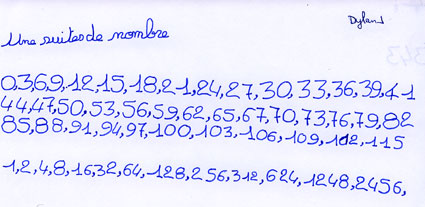 Dylan
Une suites de nombre
0,3,6,9,12,15,18,21,24,27,30,33,36,39,41
44,47,50,53,56,59,62,65,67,70,73,76,79,82
85,88,91,94,97,100,103,106,109,112,115
1,2,4,8,16,32,64,128,256,312,624,1248,2456,